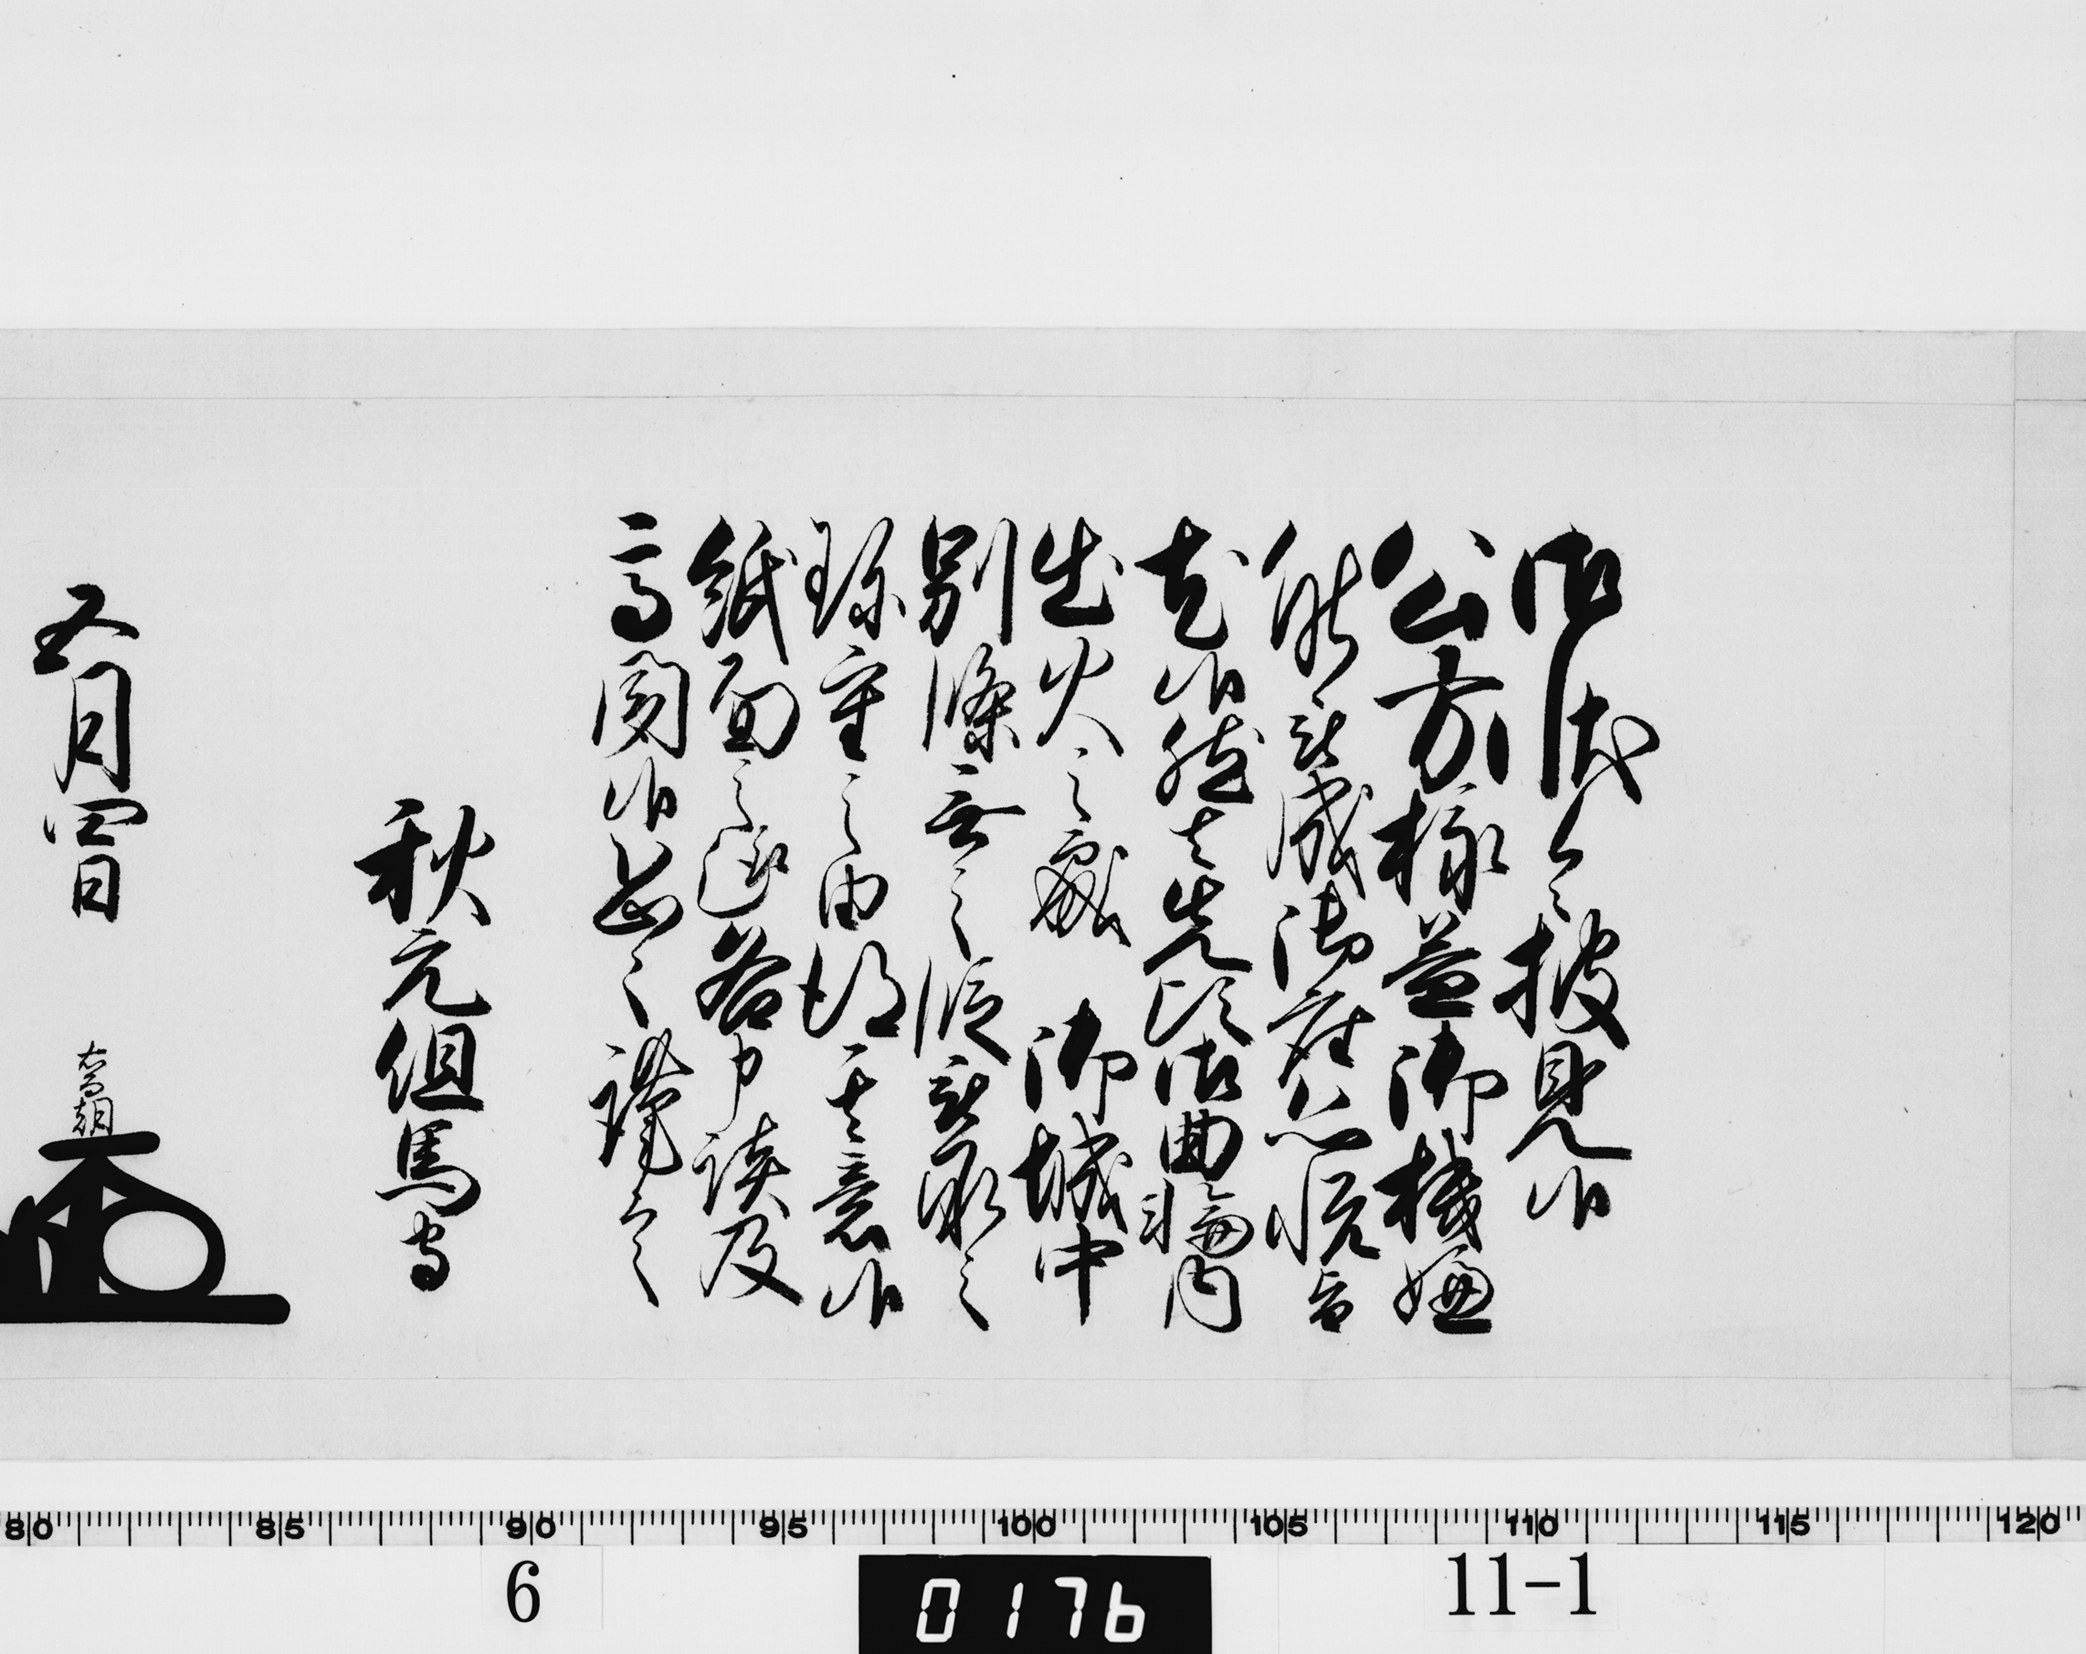 御状令披見候
公方様益御機嫌
能被成御座恐悦旨
尤候然者先頃御曲輪内
出火之處御城中
別條無之段被承之
珍重之由得其意候
紙面之趣各申談及
高聞候恐々謹言
秋元但馬守
五月四日
喬朝
80 85 90 95 100 105 110 115 120
6
0176
11-1